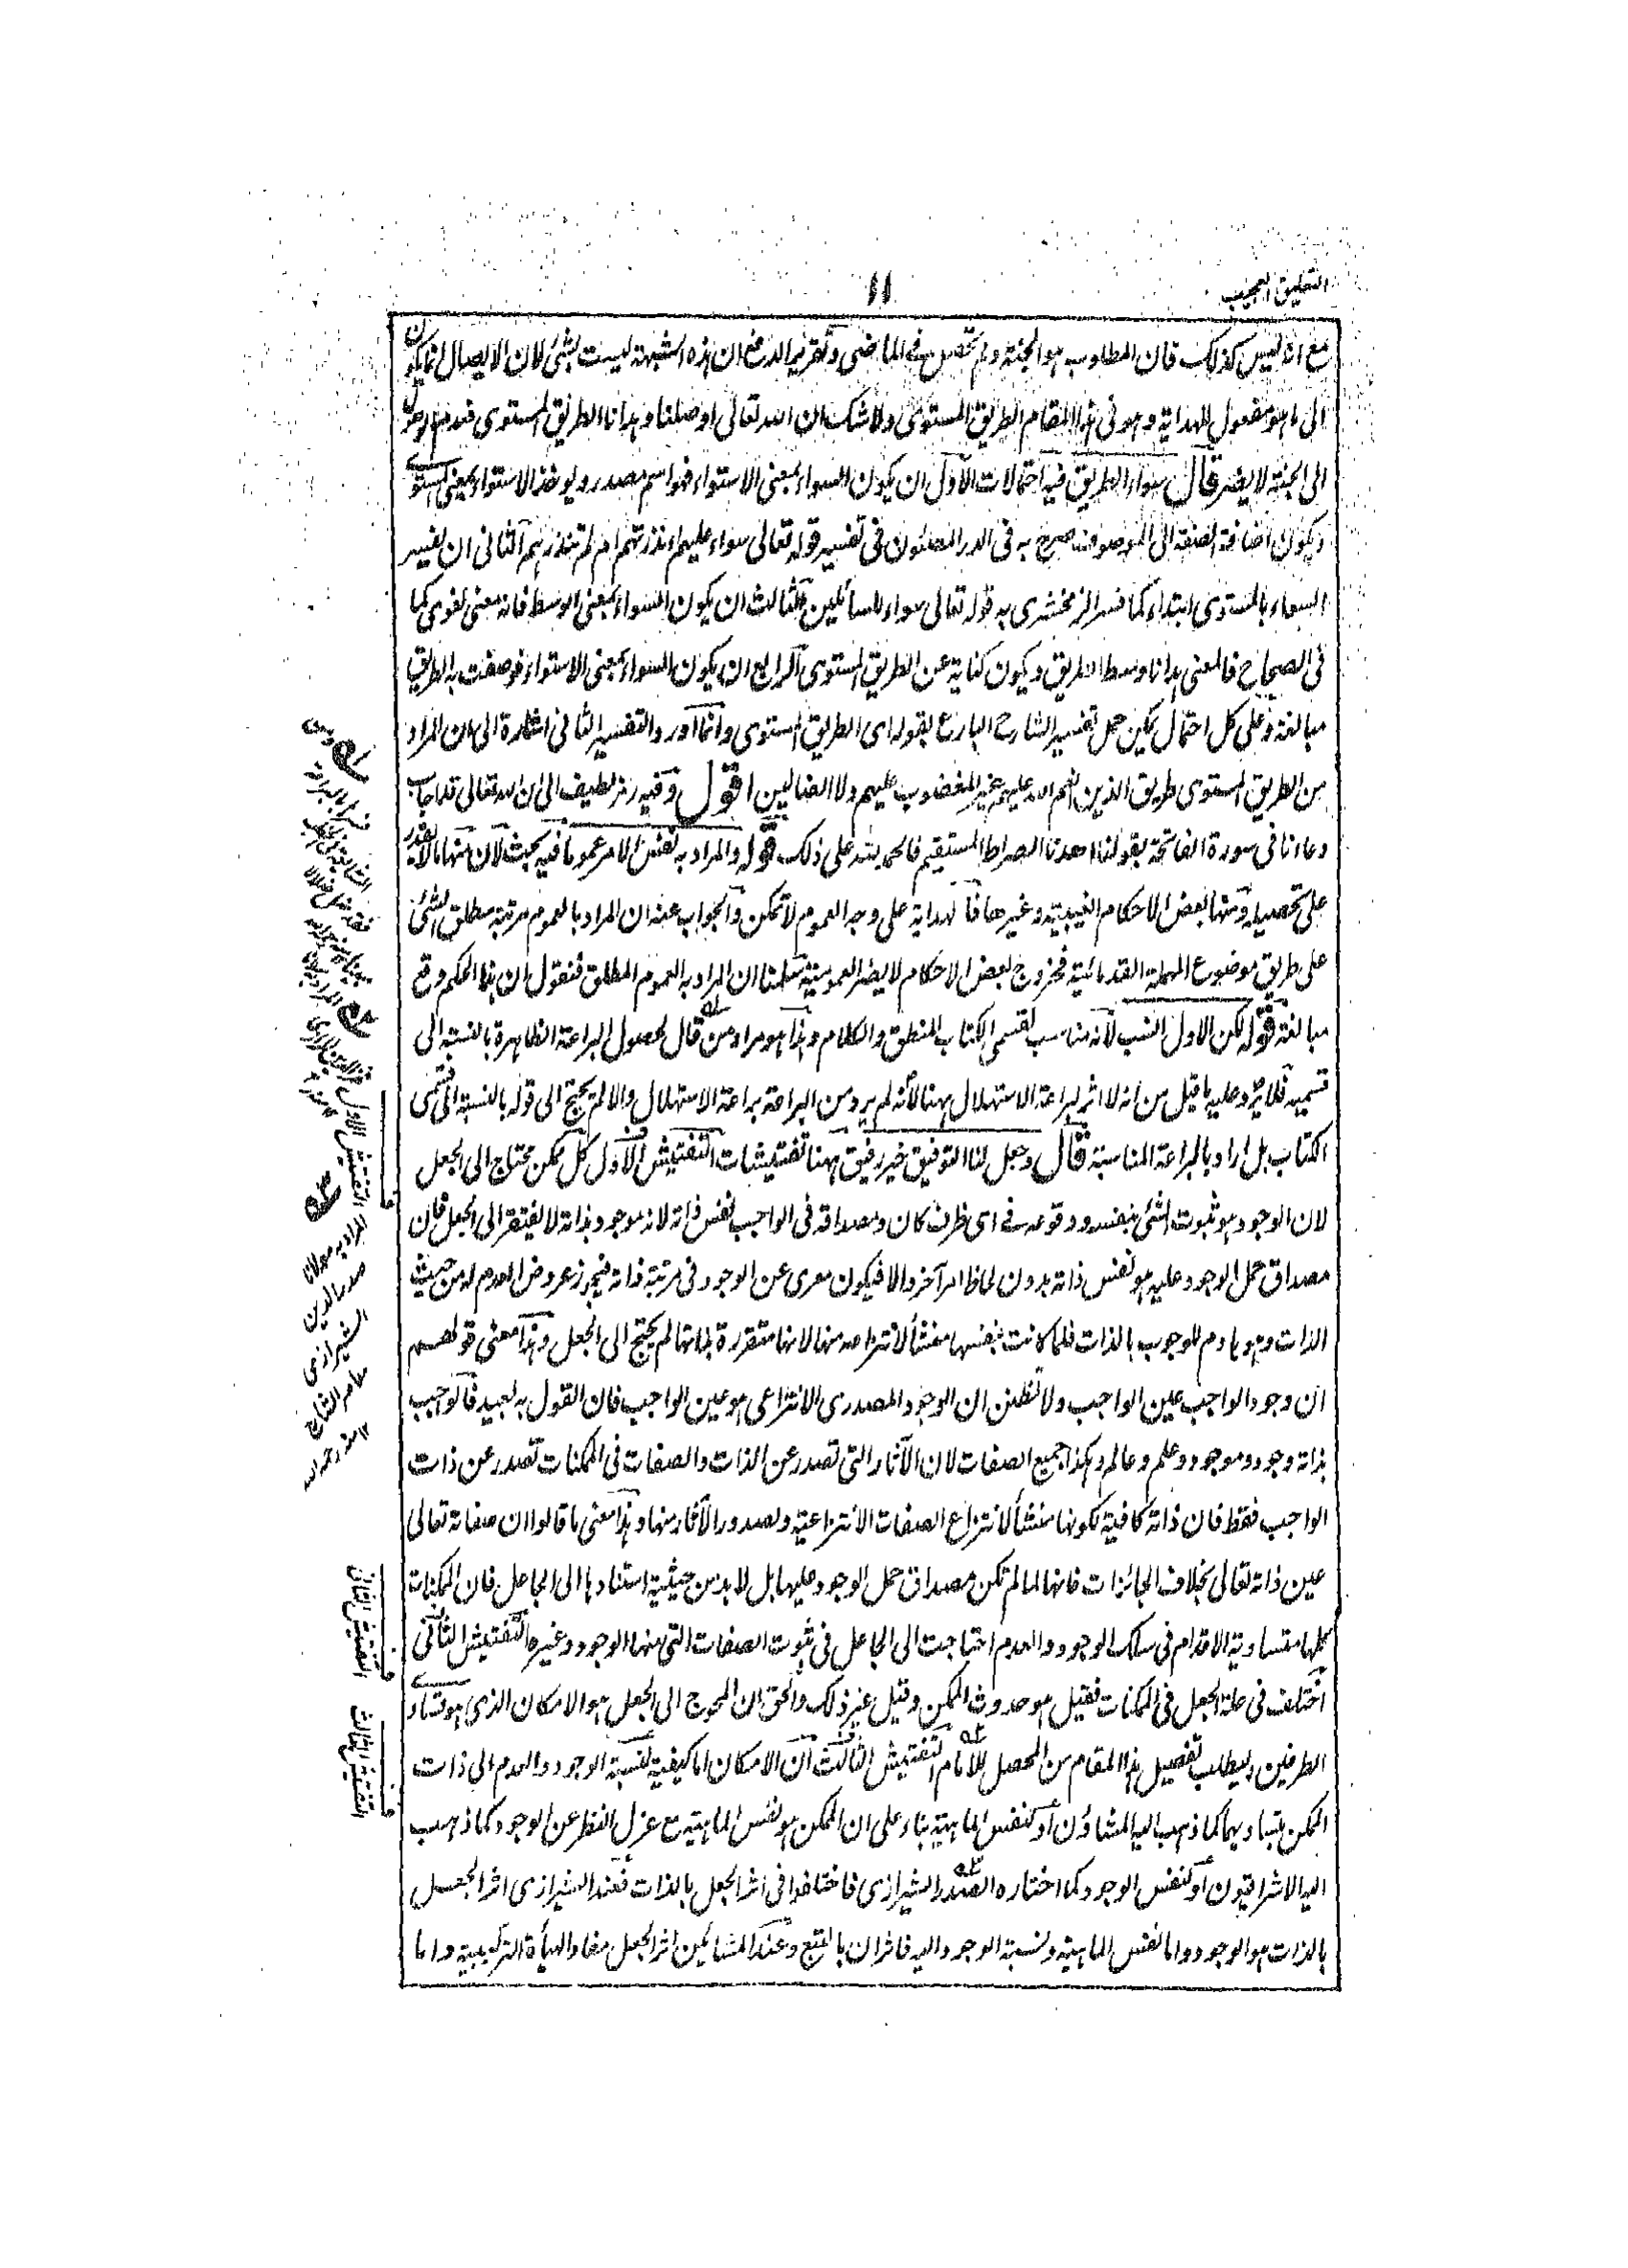 التعليق العجيب
١١
مع انه ليس كذلك فان المطلوب هو الجنة ولم تحصل فى الماضى وتقرير الدفع ان هذه الشبهة ليست بشئ لان الايصال انما يكون
الى ما هو مفعول الهداية وهو فى هذا المقام الطريق المستوى ولا شك ان الله تعالى اوصلنا وهدانا الطريق المستوى فعدم الوصول
الى الجنة لا يضر قال سواء الطريق فيه احتمالات الاول ان يكون السواء بمعنى الاستواء فهو اسم مصدر ويوخذ الاستواء بمعنى المستوى
ويكون اضافة الصفة الى الموصوف صرح به فى الدر المصئون فى تفسير قوله تعالى سواء عليهم ءانذرتهم ام لم تنذرهم الثانى ان يفسر
السواء بالمستوى ابتداء كما فسر الزمخشرى به قوله تعالى سواء للسائلين الثالث ان يكون السواء بمعنى الوسط فانه معنى لغوى كما
فى الصحاح فالمعنى هدانا وسط الطريق ويكون كناية عن الطريق المستوى الرابع ان يكون السواء بمعنى الاستواء فوصفت به الطريق
مبالغة وعلى كل احتمال يمكن حمل تفسير الشارح البارع بقوله اى الطريق المستوى وانما اورد التفسير الثانى اشارة الى ان المراد
من الطريق المستوى طريق الذين انعم الله عليهم غير المغضوب عليهم ولا الضالين اقول وفيه رمز لطيف الى ان الله تعالى قد اجاب
دعاءنا فى سورة الفاتحة بقولنا اهدنا الصراط المستقيم فالحمد لله على ذلك قوله والمراد به نفس الامر عموما فيه بحث لان منها ما لا يقدر
على تحصيله ومنها بعض الاحكام الغيبية وغيرها فالهداية على وجه العموم لا تمكن والجواب عنه ان المراد بالعموم مرتبة مطلق الشئ
على طريق موضوع المهملة القدمائية فخروج بعض الاحكام لا يضر العمومية سلمنا ان المراد به العموم المطلق فنقول ان هذا الحكم وقع
مبالغة قوله لكن الاول انسب لانه مناسب لقسمى الكتاب المنطق والكلام وهذا هو مراد من قال لحصول البراعة الظاهرة بالنسبة الى
قسميه فلا يرد عليه ما قيل من انه لا اثر لبراعة الاستهلال ههنا لانه لم يرد من البراعة براعة الاستهلال والا لم يحتج الى قوله بالنسبة الى قسمى
الكتاب بل اراد بالبراعة المناسبة قال وجعل لنا التوفيق خير رفيق ههنا تفتيشات التفتيش الاول كل ممكن محتاج الى الجعل
لان الوجود هو ثبوت الشئ بنفسه ووقوعه فى اى ظرف كان ومصداقه فى الواجب نفس ذاته لانه موجود بذاته لا يفتقر الى الجعل فان
مصداق حمل الوجود عليه هو نفس ذاته بدون لحاظ امر آخر والا فيكون معرى عن الوجود فى مرتبة ذاته فيجوز عروض العدم له من حيث
الذات وهو هادم للوجوب بالذات فلما كانت بنفسها منشأ لانتزاعه منها لانها متقررة بذاتها لم يحتج الى الجعل وهذا معنى قولهم
ان وجود الواجب عين الواجب ولا تظنن ان الوجود المصدرى الانتزاعى هو عين الواجب فان القول به بعيد فالواجب
بذاته وجود وموجود وعلم وعالم وهكذا جميع الصفات لان الآثار التى تصدر عن الذات والصفات فى الممكنات تصدر عن ذات
الواجب فقط فان ذاته كافية لكونها منشأ لانتزاع الصفات الانتزاعية ولصدور الآثار منها وهذا معنى ما قالوا ان صفاته تعالى
عين ذاته تعالى بخلاف الجائزات فانها لما لم تكن مصداق حمل الوجود عليها بل لا بد من حيثية استنادها الى الجاعل فان الممكنات
كلها متساوية الاقدام فى سلك الوجود والعدم احتاجت الى الجاعل فى ثبوت الصفات التى منها الوجود وغيره التفتيش الثانى
اختلف فى علة الجعل فى الممكنات فقيل هو حدوث الممكن وقيل غير ذلك والحق ان المحوج الى الجعل هو الامكان الذى هو تساوى
الطرفين ليطلب تفصيل هذا المقام من المحصل للامام التفتيش الثالث ان الامكان اما كيفية نسبة الوجود والعدم الى ذات
الممكن بتساويهما كما ذهب اليه المشاؤن او كنفس الماهية بناء على ان الممكن هو نفس الماهية مع عزل النظر عن الوجود كما ذهب
اليه الاشراقيون او كنفس الوجود كما اختاره الصدر الشيرازى فاختلفوا فى اثر الجعل بالذات فعند الشيرازى اثر الجعل
بالذات هو الوجود واما نفس الماهية ونسبة الوجود اليه فاثران بالتبع وعند المشائين اثر الجعل مفاد الهيأة التركيبية واما
التفتيش الاول
المراد به مولانا
صدر الدين
الشيرازى
معاصر الشارح
١٢ منه رحمه الله
التفتيش الثانى
التفتيش الثالث